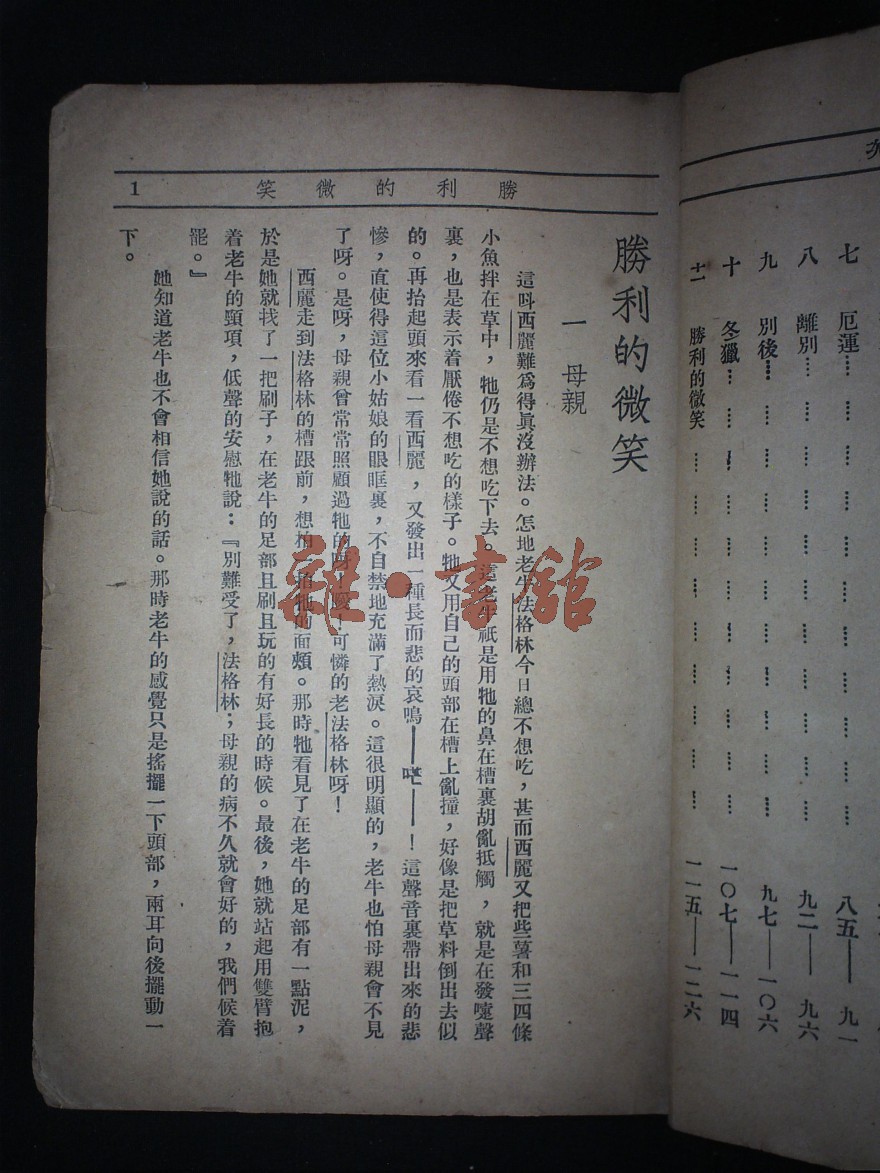 七　厄運…………八五——九一
八　離別…………九二——九六
九　別後…………九七——一〇六
十　冬獵…………一〇七——一一四
十一　勝利的微笑…………一一五——一二六
勝利的微笑
1
勝利的微笑
一　母親
這呌西麗難爲得眞沒辦法。怎地老牛法格林今日總不想吃，甚而西麗又把些薯和三四條
小魚拌在草中，牠仍是不想吃下去。這老牛祇是用牠的鼻在槽裏胡亂抵觸，就是在發嚏聲
裏，也是表示着厭倦不想吃的樣子。牠又用自己的頭部在槽上亂撞，好像是把草料倒出去似
的。再抬起頭來看一看西麗，又發出一種長而悲的哀鳴————！這聲音裏帶出來的悲
慘，直使得這位小姑娘的眼眶裏，不自禁地充滿了熱淚。這很明顯的，老牛也怕母親會不見
了呀。是呀，母親曾常常照顧過牠的呀！噯！可憐的老法格林呀！
西麗走到法格林的槽跟前，想拍一拍牠的面頰。那時牠看見了在老牛的足部有一點泥，
於是她就找了一把刷子，在老牛的足部且刷且玩的有好長的時候。最後，她就站起用雙臂抱
着老牛的頸項，低聲的安慰牠說：『別難受了，法格林；母親的病不久就會好的，我們候着
罷。』
她知道老牛也不會相信她說的話。那時老牛的感覺只是搖擺一下頭部，兩耳向後擺動一
下。
雜·書館